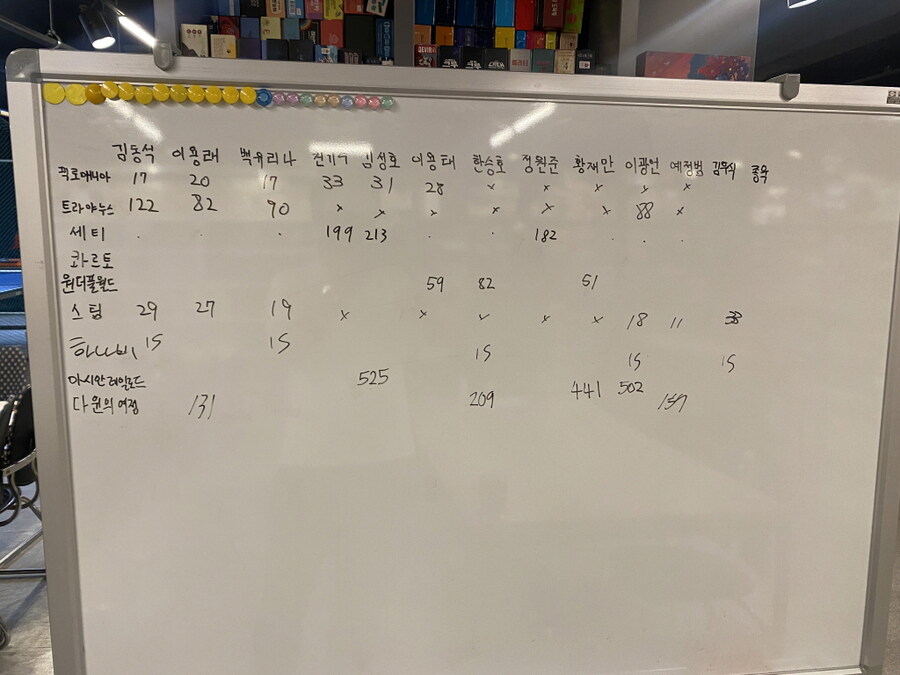 김동석 이용래 빡유리나 전기수 임성호 이용태 한승호 정원준 황재만 이광언 예정범 김우식 종욱
픽로매니아 17 20 17 33 31 28 x x x x x
트라야누스 122 82 90 x x x x x x 88 x
세티 . . . 199 213 . . 182 . . .
콰르토
원더풀월드 59 82 51
스팀 29 27 19 x x x x x 18 11 38
15 15 15 15 15
아시안레일로드 525 441 502
다윈의여정 131 209 157